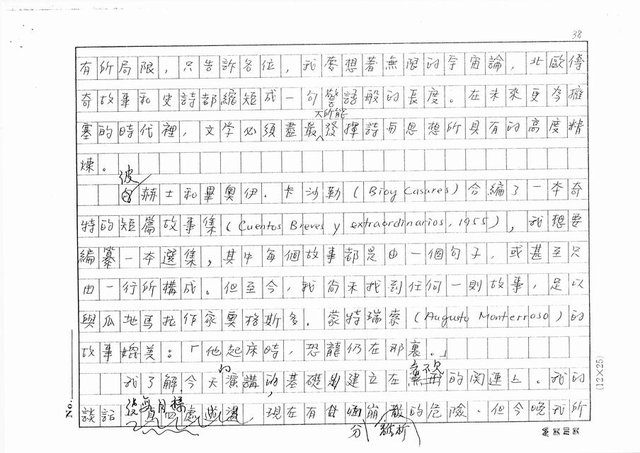 38
有所局限，只告訴各位，我夢想著無限的宇宙論，北歐傳
奇故事和史詩都縮短成一句警語般的長度。在未來更令癱
塞的時代裡，文學必須盡最大所能發揮詩與思想所具有的高度精
煉。
波赫士和畢奧伊．卡沙勒（Bioy Casares）合編了一本奇
特的短篇故事集（Cuentos Breves y extraordinarios, 1955），我想要
編纂一本選集，其中每個故事都是由一個句子，或甚至只
由一行所構成。但至今，我尚未找到任何一則故事，足以
與瓜地馬拉作家奧格斯多．蒙特瑞索（Augusto Monterroso）的
故事媲美：「他起床時，恐龍仍在那裏。」
我了解今天演講的基礎，建立在 的関連上。我的
談話 現在有 崩 的危險。但今晚我所
分 離析
(12×25)